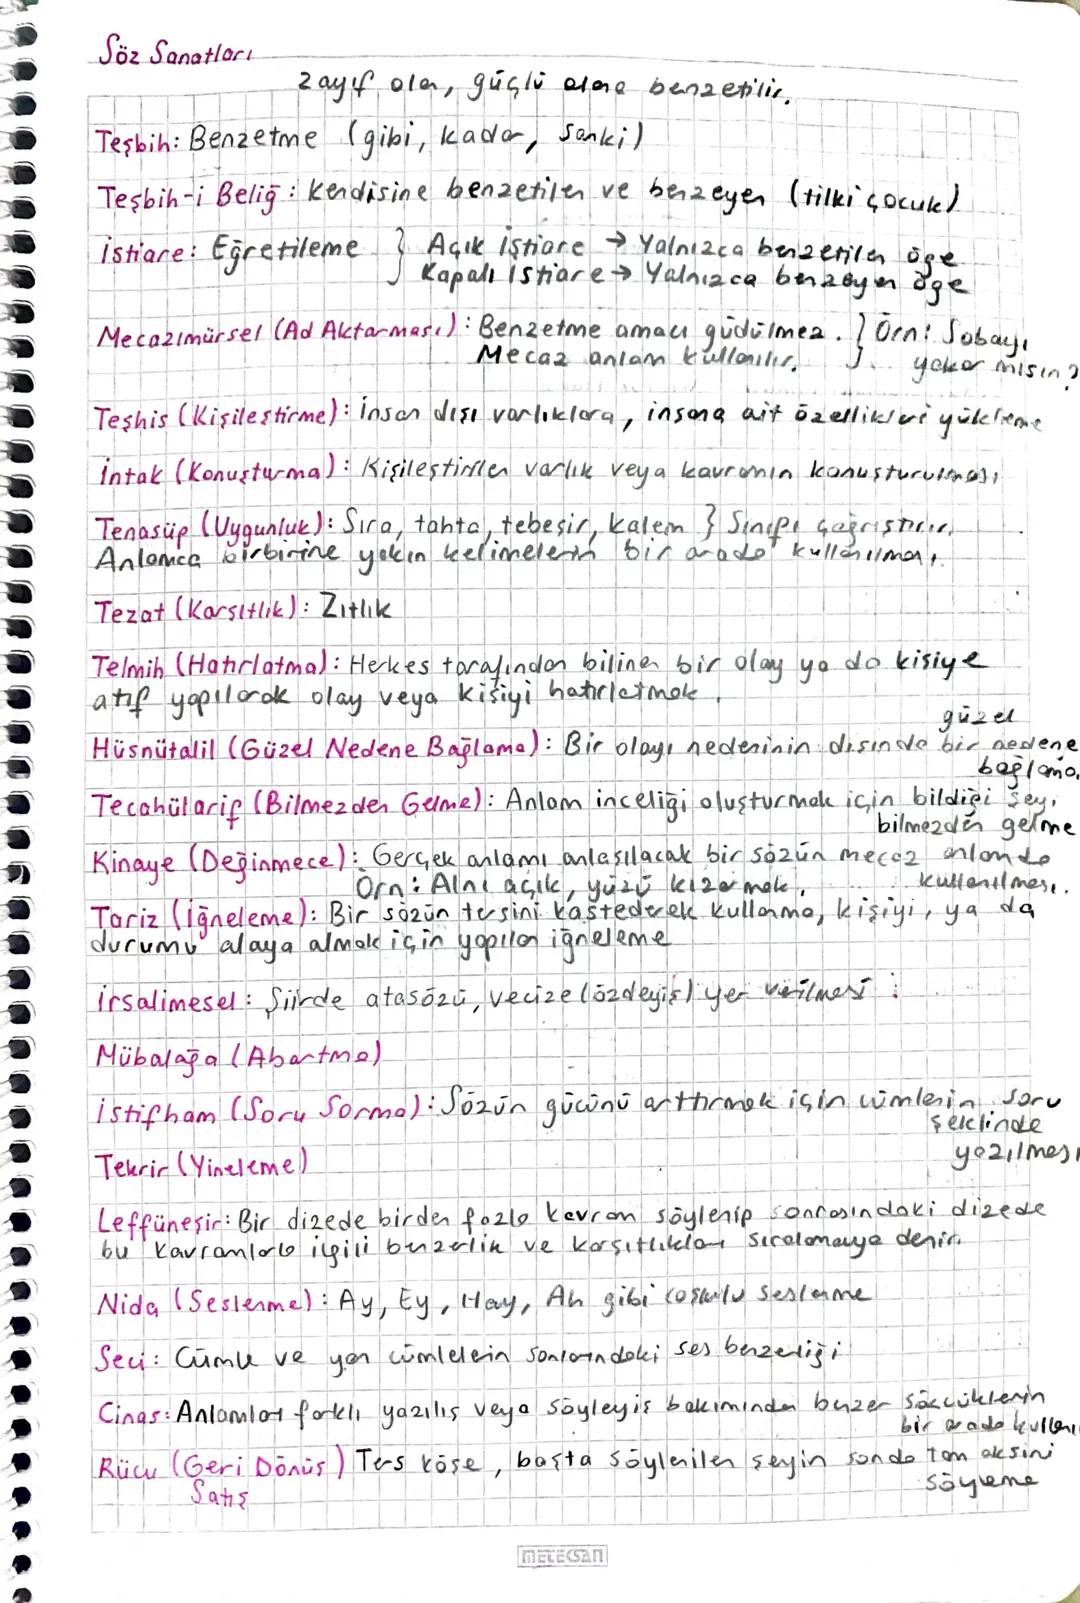 Söz Sanatları
zayıf olan, güçlü olana benzetilir.
Teşbih: Benzetme (gibi, kadar, sanki)
Teşbih-i Beliğ: Kendisine benzetilen ve benzeyen (tilki çocuk)
İstiare: Eğretileme } Açık İştiare → Yalnızca benzetilen öge
Kapalı İstiare → Yalnızca benzeyen öge
Mecazımürsel (Ad Aktarması): Benzetme amacı güdülmez. } Örn: Sobayı
Mecaz anlam kullanılır. yakar mısın?
Teşhis (Kişileştirme): İnsan dışı varlıklara, insana ait özellikleri yükleme
İntak (Konuşturma): Kişileştirilen varlık veya kavramın konuşturulması
Tenasüp (Uygunluk): Sıra, tahta, tebeşir, kalem } Sınıfı çağrıştırır.
Anlamca birbirine yakın kelimelerin bir arada kullanılması.
Tezat (Karşıtlık): Zıtlık
Telmih (Hatırlatma): Herkes tarafından bilinen bir olay ya da kişiye
atıf yapılarak olay veya kişiyi hatırlatmak.
güzel
Hüsnütalil (Güzel Nedene Bağlama): Bir olayı nedeninin dışında bir nedene
bağlama.
Tecahülarif (Bilmezden Gelme): Anlam inceliği oluşturmak için bildiği şeyi
bilmezden gelme
Kinaye (Değinmece): Gerçek anlamı anlaşılacak bir sözün mecaz anlamda
Örn: Alnı açık, yüzü kızarmak. kullanılması.
Tariz (İğneleme): Bir sözün tersini kastederek kullanma, kişiyi, ya da
durumu alaya almak için yapılan iğneleme
İrsalimesel: Şiirde atasözü, vecize (özdeyiş) yer verilmesi
Mübalağa (Abartma)
İstifham (Soru Sorma): Sözün gücünü arttırmak için cümlenin soru
şeklinde
yazılması
Tekrir (Yineleme)
Leffüneşir: Bir dizede birden fazla kavram söylenip sonrasındaki dizede
bu kavramlarla ilgili benzerlik ve karşıtlıkları sıralamaya denir.
Nida (Seslenme): Ay, Ey, Hay, Ah gibi coşkulu seslenme
Seci: Cümle ve yan cümlelerin sonlarındaki ses benzerliği
Cinas: Anlamları farklı yazılış veya söyleyiş bakımından benzer sözcüklerin
bir arada
Rücu (Geri Dönüş) Ters köşe, başta söylenilen şeyin sonda tam aksini
Satış söyleme
METEKSAN